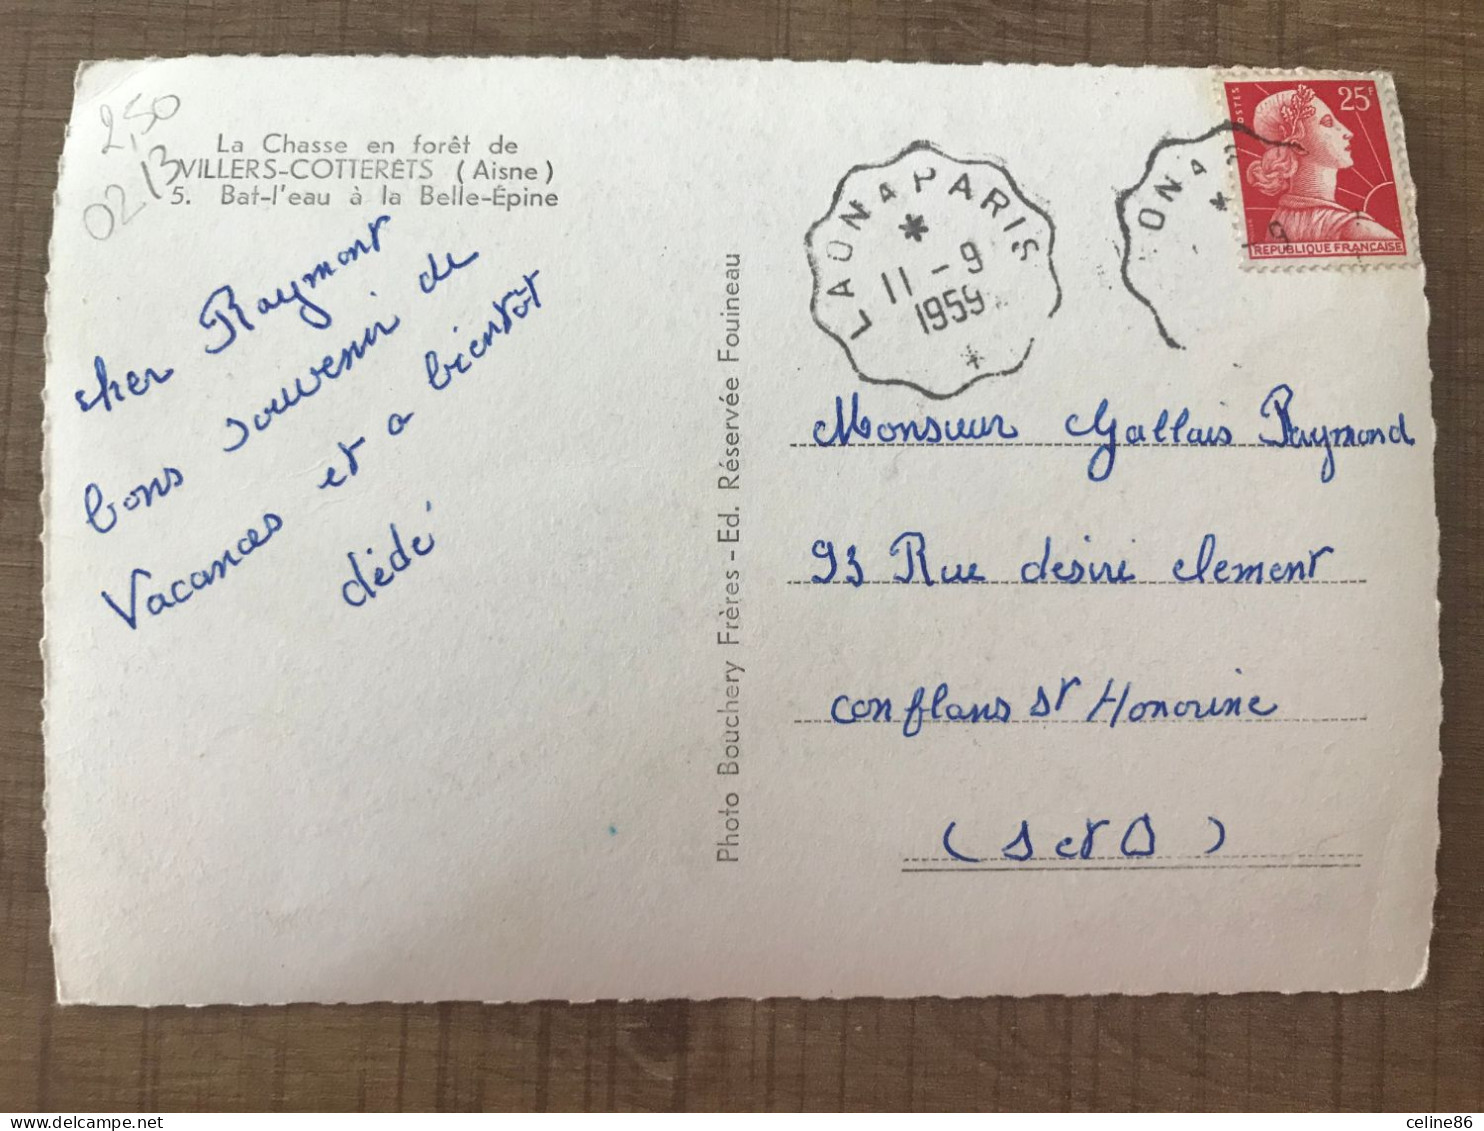 2,50
0213
La Chasse en forêt de
VILLERS-COTTERÊTS (Aisne)
5. Bat-l'eau à la Belle-Épine
cher Raymont
bons souvenir de
Vacances et a bientôt
dédé
Photo Bouchery Frères - Ed. Réservée Fouineau
LAON A PARIS
11 - 9
1959
ON A
- 9
POSTES
25F
REPUBLIQUE FRANÇAISE
Monsieur Gallais Raymond
93 Rue desiré clement
conflans St Honorine
(S et O)
celine86